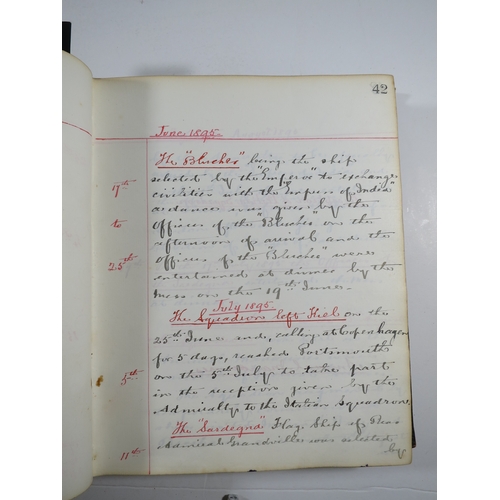 42
June 1895.
The "Blucher" being the ship
17th selected by the "Emperor" to exchange
civilities with the "Empress of India"
to a dance was given by the
Officers of the "Blucher" on the
afternoon of arrival and the
25th Officers of the "Blucher" were
entertained at dinner by the
Mess on the 19th June.
July 1895.
The Squadron left Kiel on the
25th June and, calling at Copenhagen
for 5 days, reached Portsmouth
5th on the 5th July to take part
in the reception given by the
Admiralty to the Italian Squadron.
The "Sardegna" Flag Ship of Rear
11th Admiral Grandville was selected,
by